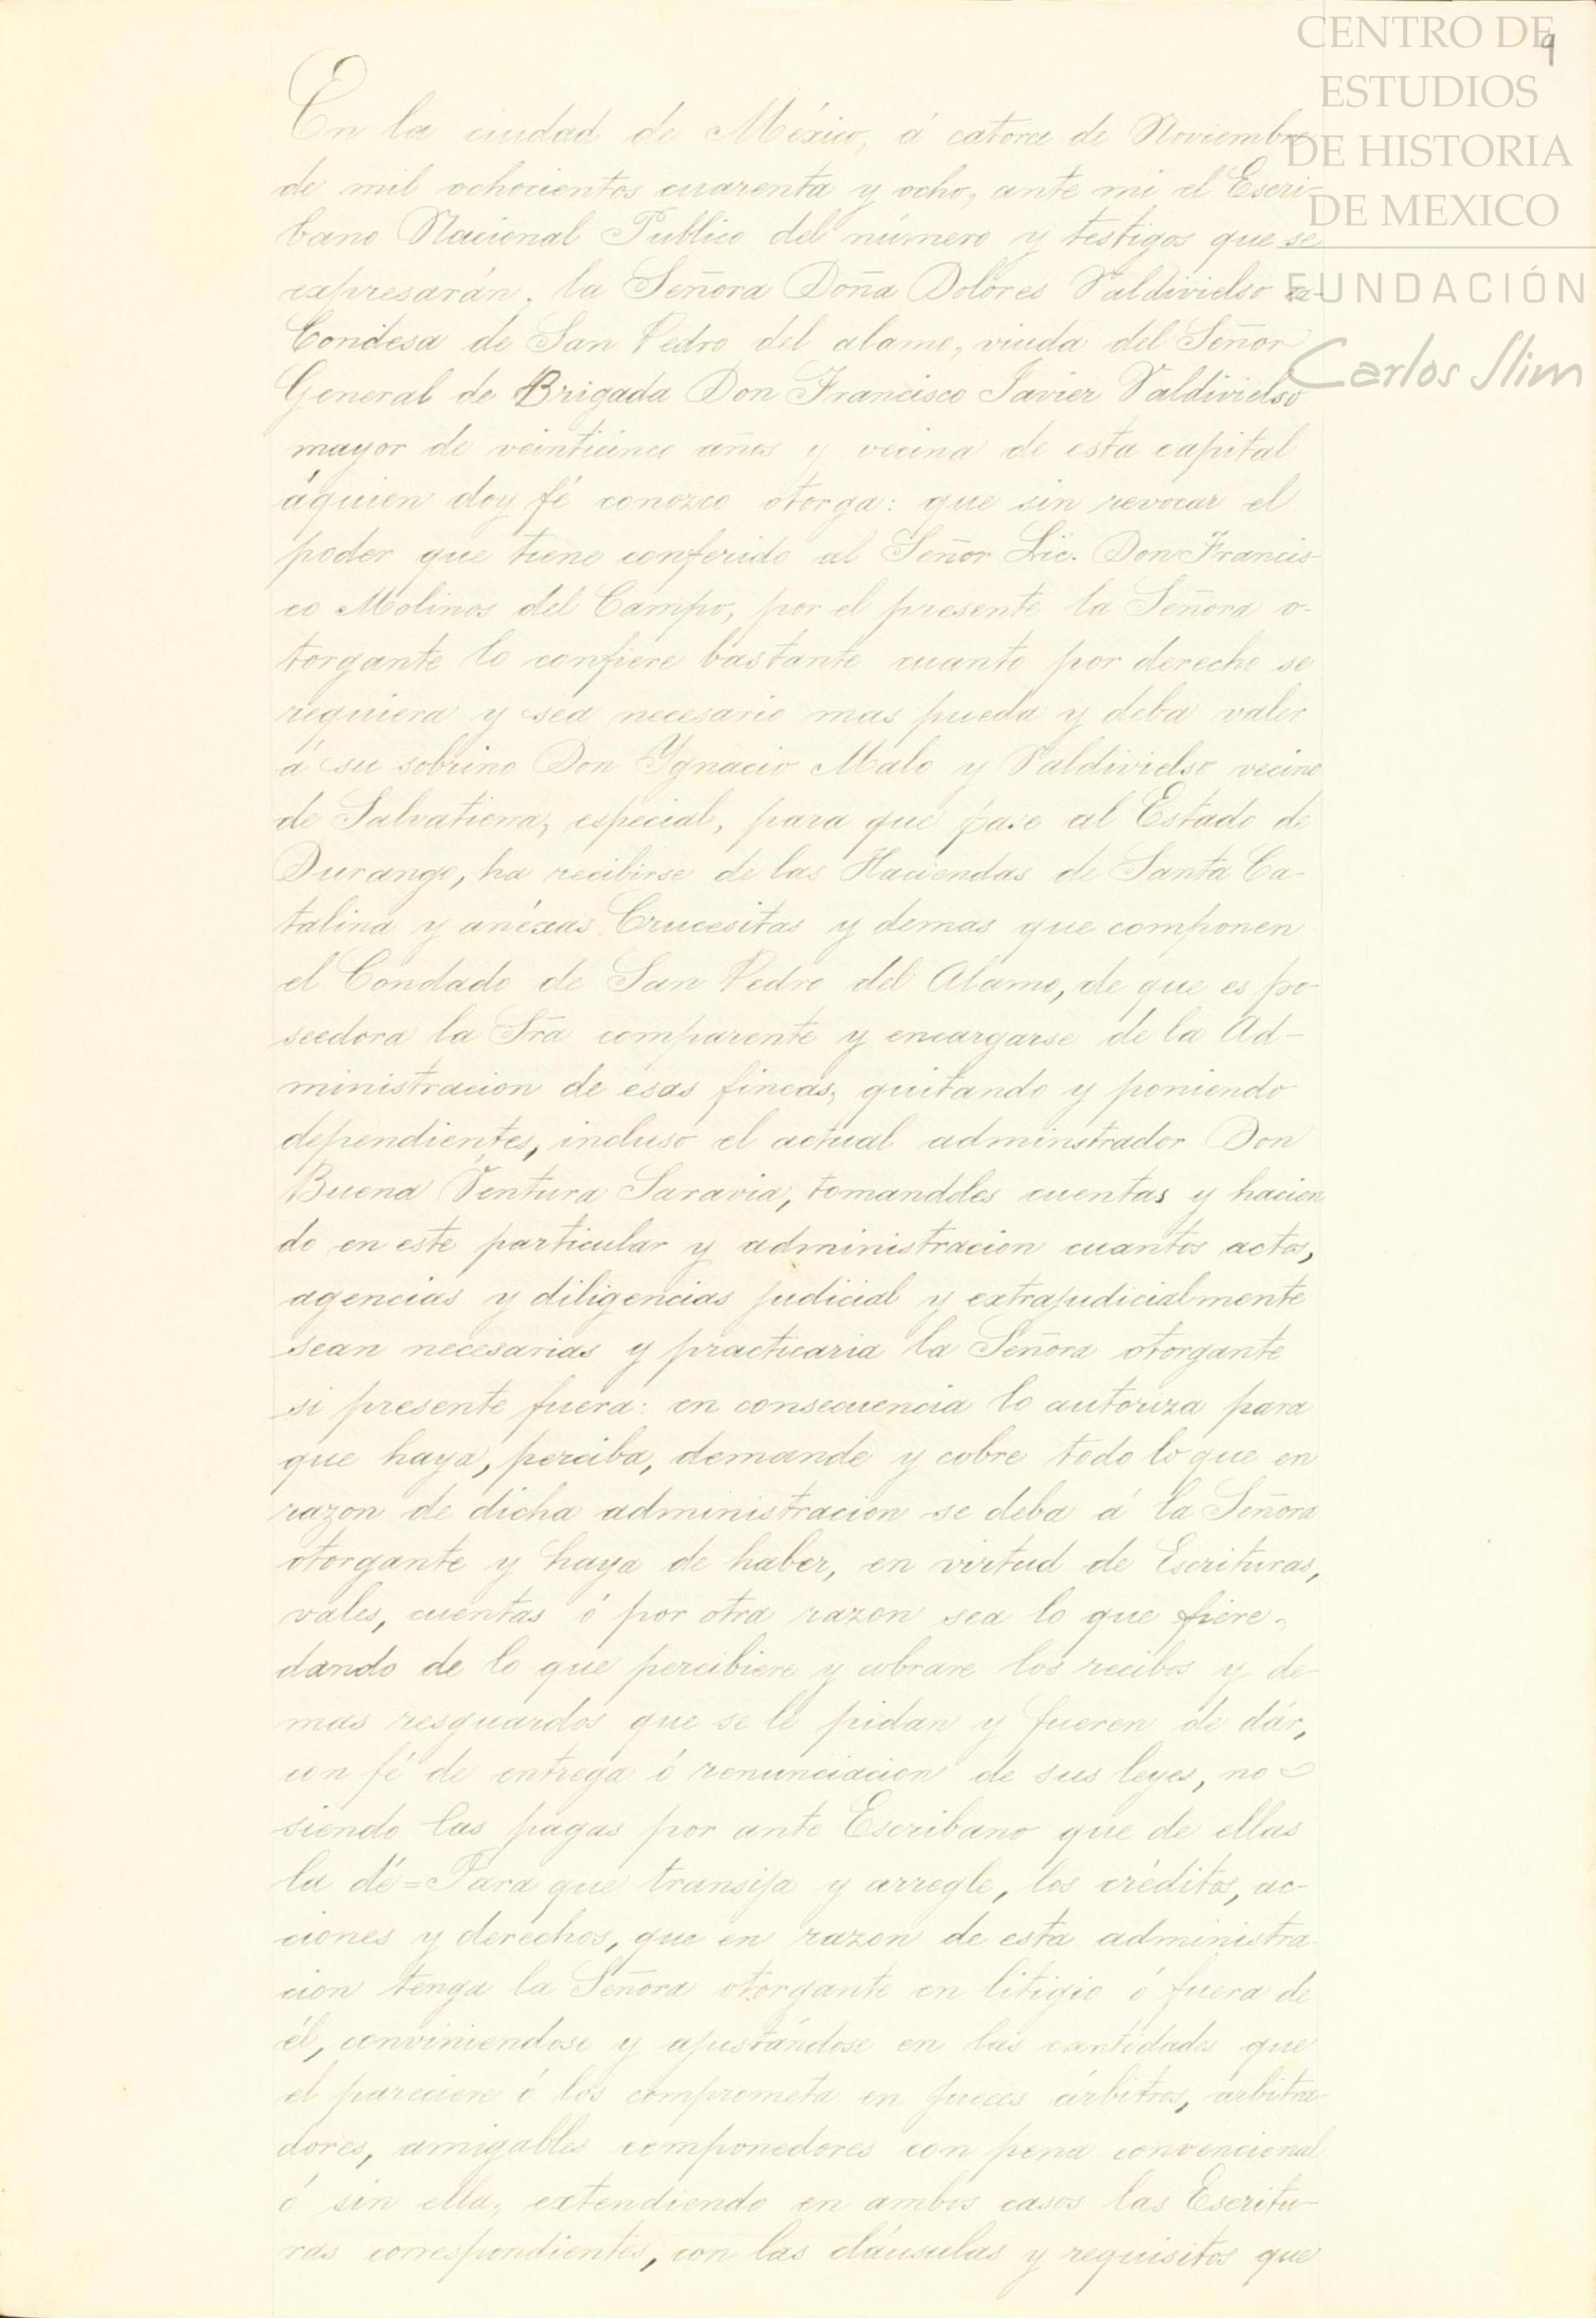 CENTRO DE
ESTUDIOS
DE HISTORIA
DE MEXICO
FUNDACIÓN
Carlos Slim
9
En la ciudad de México, á catorce de Noviembre
de mil ochocientos cuarenta y ocho, ante mi el Escri-
bano Nacional Publico del número y testigos que se
expresarán, la Señora Doña Dolores Valdivielso
Condesa de San Pedro del alamo, viuda del Señor
General de Brigada Don Francisco Javier Valdivielso
mayor de veinticinco años y vecina de esta capital
áquien doy fé conozco otorga: que sin revocar el
poder que tiene conferido al Señor Lic. Don Francis-
co Molinos del Campo, por el presente la Señora o-
torgante lo confiere bastante cuanto por derecho se
requiera y sea necesario mas pueda y deba valer
á su sobrino Don Ygnacio Malo y Valdivielso vecino
de Salvatierra, especial, para que pase al Estado de
Durango, ha recibirse de las Haciendas de Santa Ca-
talina y anéxas Crucesitas y demas que componen
el Condado de San Pedro del Alamo, de que es po-
seedora la Sra comparente y encargarse de la Ad-
ministracion de esas fincas, quitando y poniendo
dependientes, incluso el actual adminstrador Don
Buena Ventura Saravia, tomanddles cuentas y hacien
do en este particular y administracion cuantos actos,
agencias y diligencias judicial y extrajudicialmente
sean necesarias y practicaria la Señora otorgante
si presente fuera: en consecuencia lo autoriza para
que haya, perciba, demande y cobre todo lo que en
razon de dicha administracion se deba á la Señora
otorgante y haya de haber, en virtud de Escrituras,
vales, cuentas ó por otra razon sea lo que fiere,
dando de lo que percibiere y cobrare los recibos y de-
mas resguardos que se le pidan y fueren de dár,
con fé de entrega ó renunciacion de sus leyes, no
siendo las pagas por ante Escribano que de ellas
la dé = Para que transija y arregle, los créditos, ac-
ciones y derechos, que en razon de esta administra-
cion tenga la Señora otorgante en litigio ó fuera de
él, conviniendose y ajustándose en las cantidades que
el pareciere ó los comprometa en jueces árbitros, arbitra-
dores, amigables componedores con pena convencional
ó sin ella, extendiendo en ambos casos las Escritu-
ras correspondientes, con las cláusulas y requisitos que